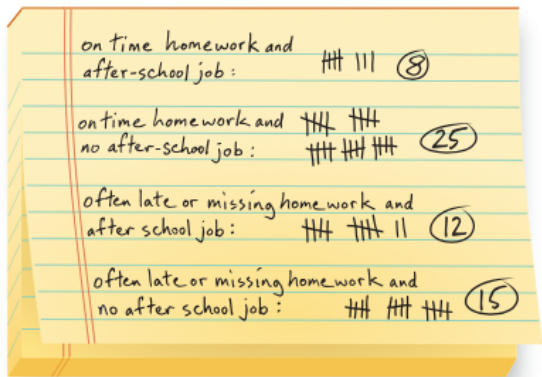 on time homework and
after-school job: 卌 III 8
on time homework and 卌 卌
no after-school job: 卌 卌 卌 25
often late or missing homework and
after school job: 卌 卌 II 12
often late or missing homework and
no after school job: 卌 卌 卌 15